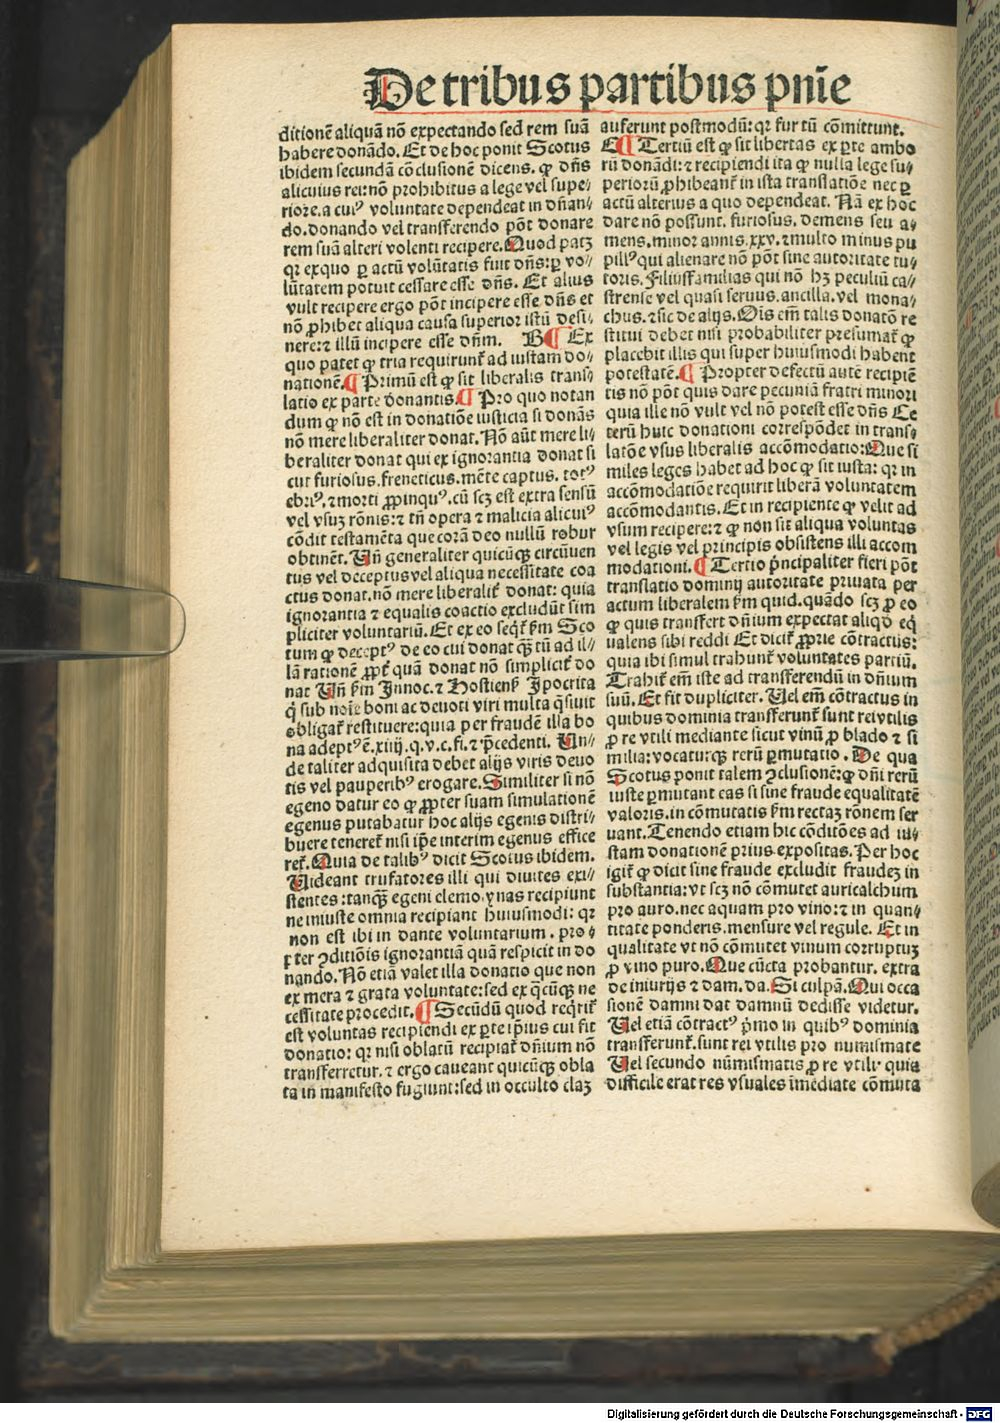 De tribus partibus pnīe
ditionē aliquā nō expectando sed rem suā
habere donādo. Et de hoc ponit Scotus
ibidem secundā cōclusionē dicens. ꝙ dn̄s
alicuius rei: nō prohibitus a lege vel supe⸗
riore. a cuiꝰ voluntate dependeat in dn̄an⸗
do. donando vel transferendo pōt donare
rem suā alteri volenti recipere. Quod patꝫ
qꝛ ex quo ꝑ actū volūtatis fuit dn̄s: ꝑ vo⸗
lūtatem potuit cessare esse dn̄s. Et alius
vult recipere ergo pōt incipere esse dn̄s et
nō ꝓhibet aliqua causa superior istū desi⸗
nere: ⁊ illū incipere esse dn̄m. B ¶ Ex
quo patet ꝙ tria requirunt̄ ad iustam do⸗
nationē. ¶ Primū est ꝙ sit liberalis trans⸗
latio ex parte donantis. ¶ Pro quo notan
dum ꝙ nō est in donatiōe iusticia si donās
nō mere liberaliter donat. Nō aūt mere li⸗
beraliter donat qui ex ignorantia donat si
cut furiosus. freneticus. mēte captus.
ebriꝰ. ⁊ morti ꝓpinquꝰ. cū scꝫ est extra sensū
vel vsuꝫ rōnis: ⁊ tn̄ opera ⁊ malicia alicuiꝰ
cōdit testamēta que corā deo nullū robur
obtinēt. Un̄ generaliter quicūqꝫ circūuen
tus vel deceptus vel aliqua necessitate coa
ctus donat. nō mere liberalit̄ donat: quia
ignorantia ⁊ equalis coactio excludūt sim
pliciter voluntariū. Et ex eo seqt̄ ẜm Sco
tum ꝙ deceptꝰ de eo cui donat qꝫtū ad il⸗
lā rationē ꝓpt̄ quā donat nō simplicit̄ do
nat Un̄ ẜm Innoc. ⁊ Hostienẜ Ipocrita
q̄ sub noīe boni ac deuoti viri multa q̄siuit
obligat̄ restituere: quia per fraudē illa bo
na adeptꝰ ē. xiiij. q. v. c. fi. ⁊ p̄cedenti. Un⸗
de taliter adquisita debet alijs viris deuo
tis vel pauperibꝰ erogare. Similiter si nō
egeno datur eo ꝙ ꝓpter suam simulationē
egenus putabatur hoc alijs egenis distri⸗
buere teneret̄ nisi ip̄e interim egenus effice
ret̄. Quia de talibꝰ dicit Scotus ibidem.
Uideant trufatores illi qui diuites exi⸗
stentes: tanqꝫ egeni elemosynas recipiunt
ne iniuste omnia recipiant huiusmodi: qꝛ
non est ibi in dante voluntarium. pro⸗
pter ꝯditiōis ignorantiā quā respicit in do
nando. Nō etiā valet illa donatio que non
ex mera ⁊ grata voluntate: sed ex qͣcūqꝫ ne
cessitate procedit. ¶ Secūdū quod reqrit̄
est voluntas recipiendi ex ꝑte ip̄ius cui fit
donatio: qꝛ nisi oblatū recipiat̄ dn̄ium nō
transferretur. ⁊ ergo caueant quicūqꝫ obla
ta in manifesto fugiunt: sed in occulto claꝫ
auferunt postmodū: qꝛ furtū cōmittunt.
E ¶ Tertiū est ꝙ sit libertas ex ꝑte ambo
rū donādi: ⁊ recipiendi ita ꝙ nulla lege su⸗
periorū ꝓhibeant̄ in ista translatiōe nec ꝑ
actū alterius a quo dependeat. Nā ex hoc
dare nō possunt. furiosus. demens seu a⸗
mens. minor annis. xxv. ⁊ multo minus pu
pillꝰ qui alienare nō pōt sine autoritate tu⸗
toris. Filiusfamilias qui nō hꝫ peculiū ca⸗
strense vel quasi seruus. ancilla. vel mona⸗
chus. ⁊ sic de alijs. Ois em̄ talis donatō re
stitui debet nisi probabiliter presumat̄ ꝙ
placebit illis qui super huiusmodi habent
potestatē. ¶ Propter defectū autē recipiē
tis nō pōt quis dare pecuniā fratri minori
quia ille nō vult vel nō potest esse dn̄s Ce
terū huic donationi correspōdet in trans⸗
latōe vsus liberalis accōmodatio: Que si
miles leges habet ad hoc ꝙ sit iusta: qꝛ in
accōmodatiōe requirit̄ liberā voluntatem
accōmodantis. Et in recipiente ꝙ velit ad
vsum recipere: ⁊ ꝙ non sit aliqua voluntas
vel legis vel principis obsistens illi accom
modationi. ¶ Tertio p̄ncipaliter fieri pōt
translatio dominij autoritate priuata per
actum liberalem ẜm quid. quādo scꝫ ꝓ eo
ꝙ quis transfert dn̄ium expectat aliqd eq̄
ualens sibi reddi Et dicit̄ ꝓprie cōtractus:
quia ibi simul trahunt̄ voluntates partiū.
Trahit̄ em̄ iste ad transferendū in dn̄ium
suū. Et fit dupliciter. Uel em̄ cōtractus in
quibus dominia transferunt̄ sunt rei vtilis
ꝓ re vtili mediante sicut vinū ꝓ blado ⁊ si
milia: vocaturqꝫ rerū ꝑmutatio. De qua
Scotus ponit talem ꝯclusionē: ꝙ dn̄i rerū
iuste ꝑmutant eas si sine fraude equalitatē
valoris. in cōmutatis ẜm rectaꝫ rōnem ser
uant. Tenendo etiam hic cōditōes ad iu⸗
stam donationē prius expositas. Per hoc
igit̄ ꝙ dicit sine fraude excludit fraudeꝫ in
substantia: vt scꝫ nō cōmutet auricalchum
pro auro. nec aquam pro vino: ⁊ in quan⸗
titate ponderis. mensure vel regule. Et in
qualitate vt nō cōmutet vinum corruptuꝫ
ꝓ vino puro. Que cūcta probantur. extra
de iniurijs ⁊ dam. da. Si culpā. Qui occa
sionē damni dat damnū dedisse videtur.
Uel etiā cōtractꝰ p̄mo in quibꝰ dominia
transferunt̄. sunt rei vtilis pro numismate
Uel secundo nūmismatis ꝓ re vtili. quia
difficile erat res vsuales īmediate cōmuta
Digitalisierung gefördert durch die Deutsche Forschungsgemeinschaft - DFG